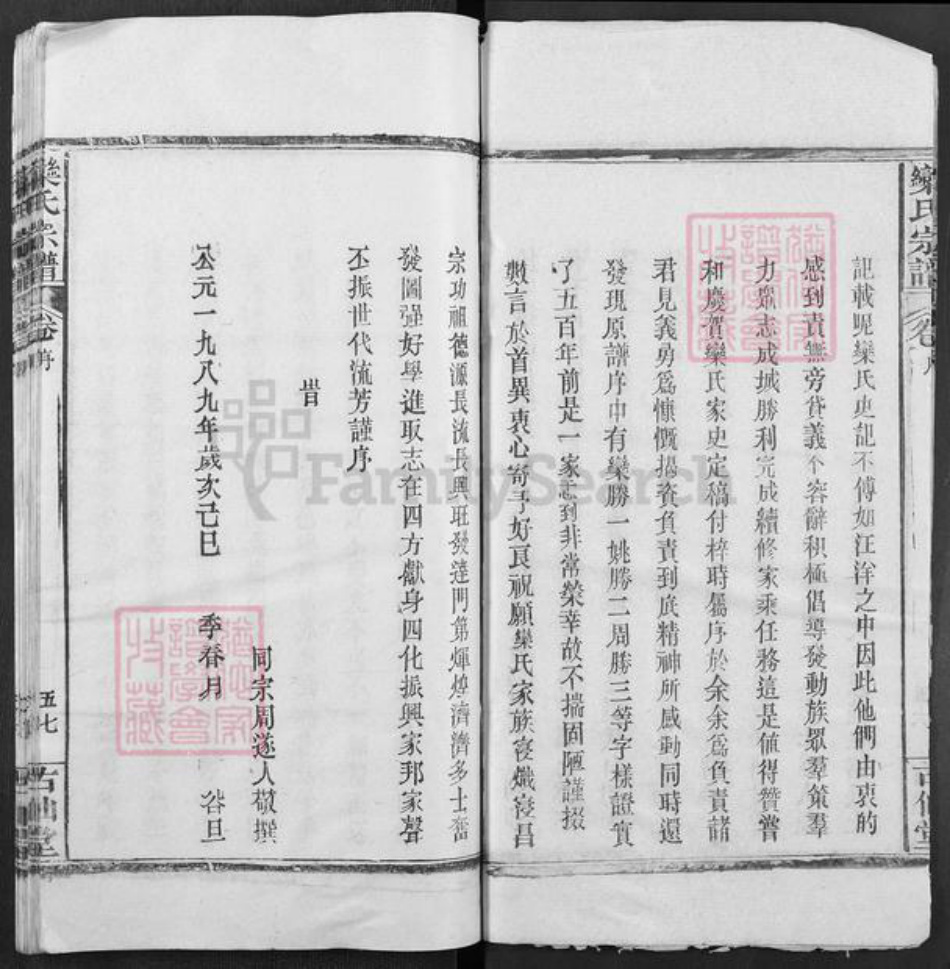 欒氏宗譜
卷
序
記載呢欒氏史記不傳如汪洋之中因此他們由衷的
感到責無旁貸義不容辭积極倡導發動族眾羣策羣
力眾志成城勝利完成續修家乘任務這是値得贊賞
和慶賀欒氏家史定稿付梓時屬序於余余爲負責諸
君見義勇爲慷慨捐資負責到底精神所感動同時還
發現原譜序中有欒勝一姚勝二周勝三等字樣證實
了五百年前是一家感到非常榮幸故不揣固陋謹掇
數言於首異衷心寄予好良祝願欒氏家族寖熾寖昌
宗功祖德源長流長興旺發達門第煇煌濟濟多士奮
發圖强好學進取志在四方獻身四化振興家邦家聲
丕振世代流芳謹序
旹
同宗周遂人敬撰
公元一九八九年歲次己巳 季春月 谷旦
欒氏宗譜
卷
序
五七
FamilySearch